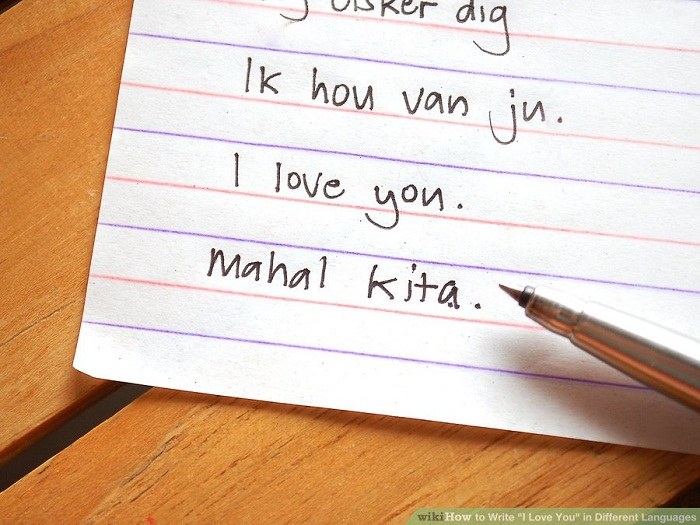 elsker dig
Ik hou van ju.
I love you.
Mahal kita.
wikiHow to Write "I Love You" in Different Languages